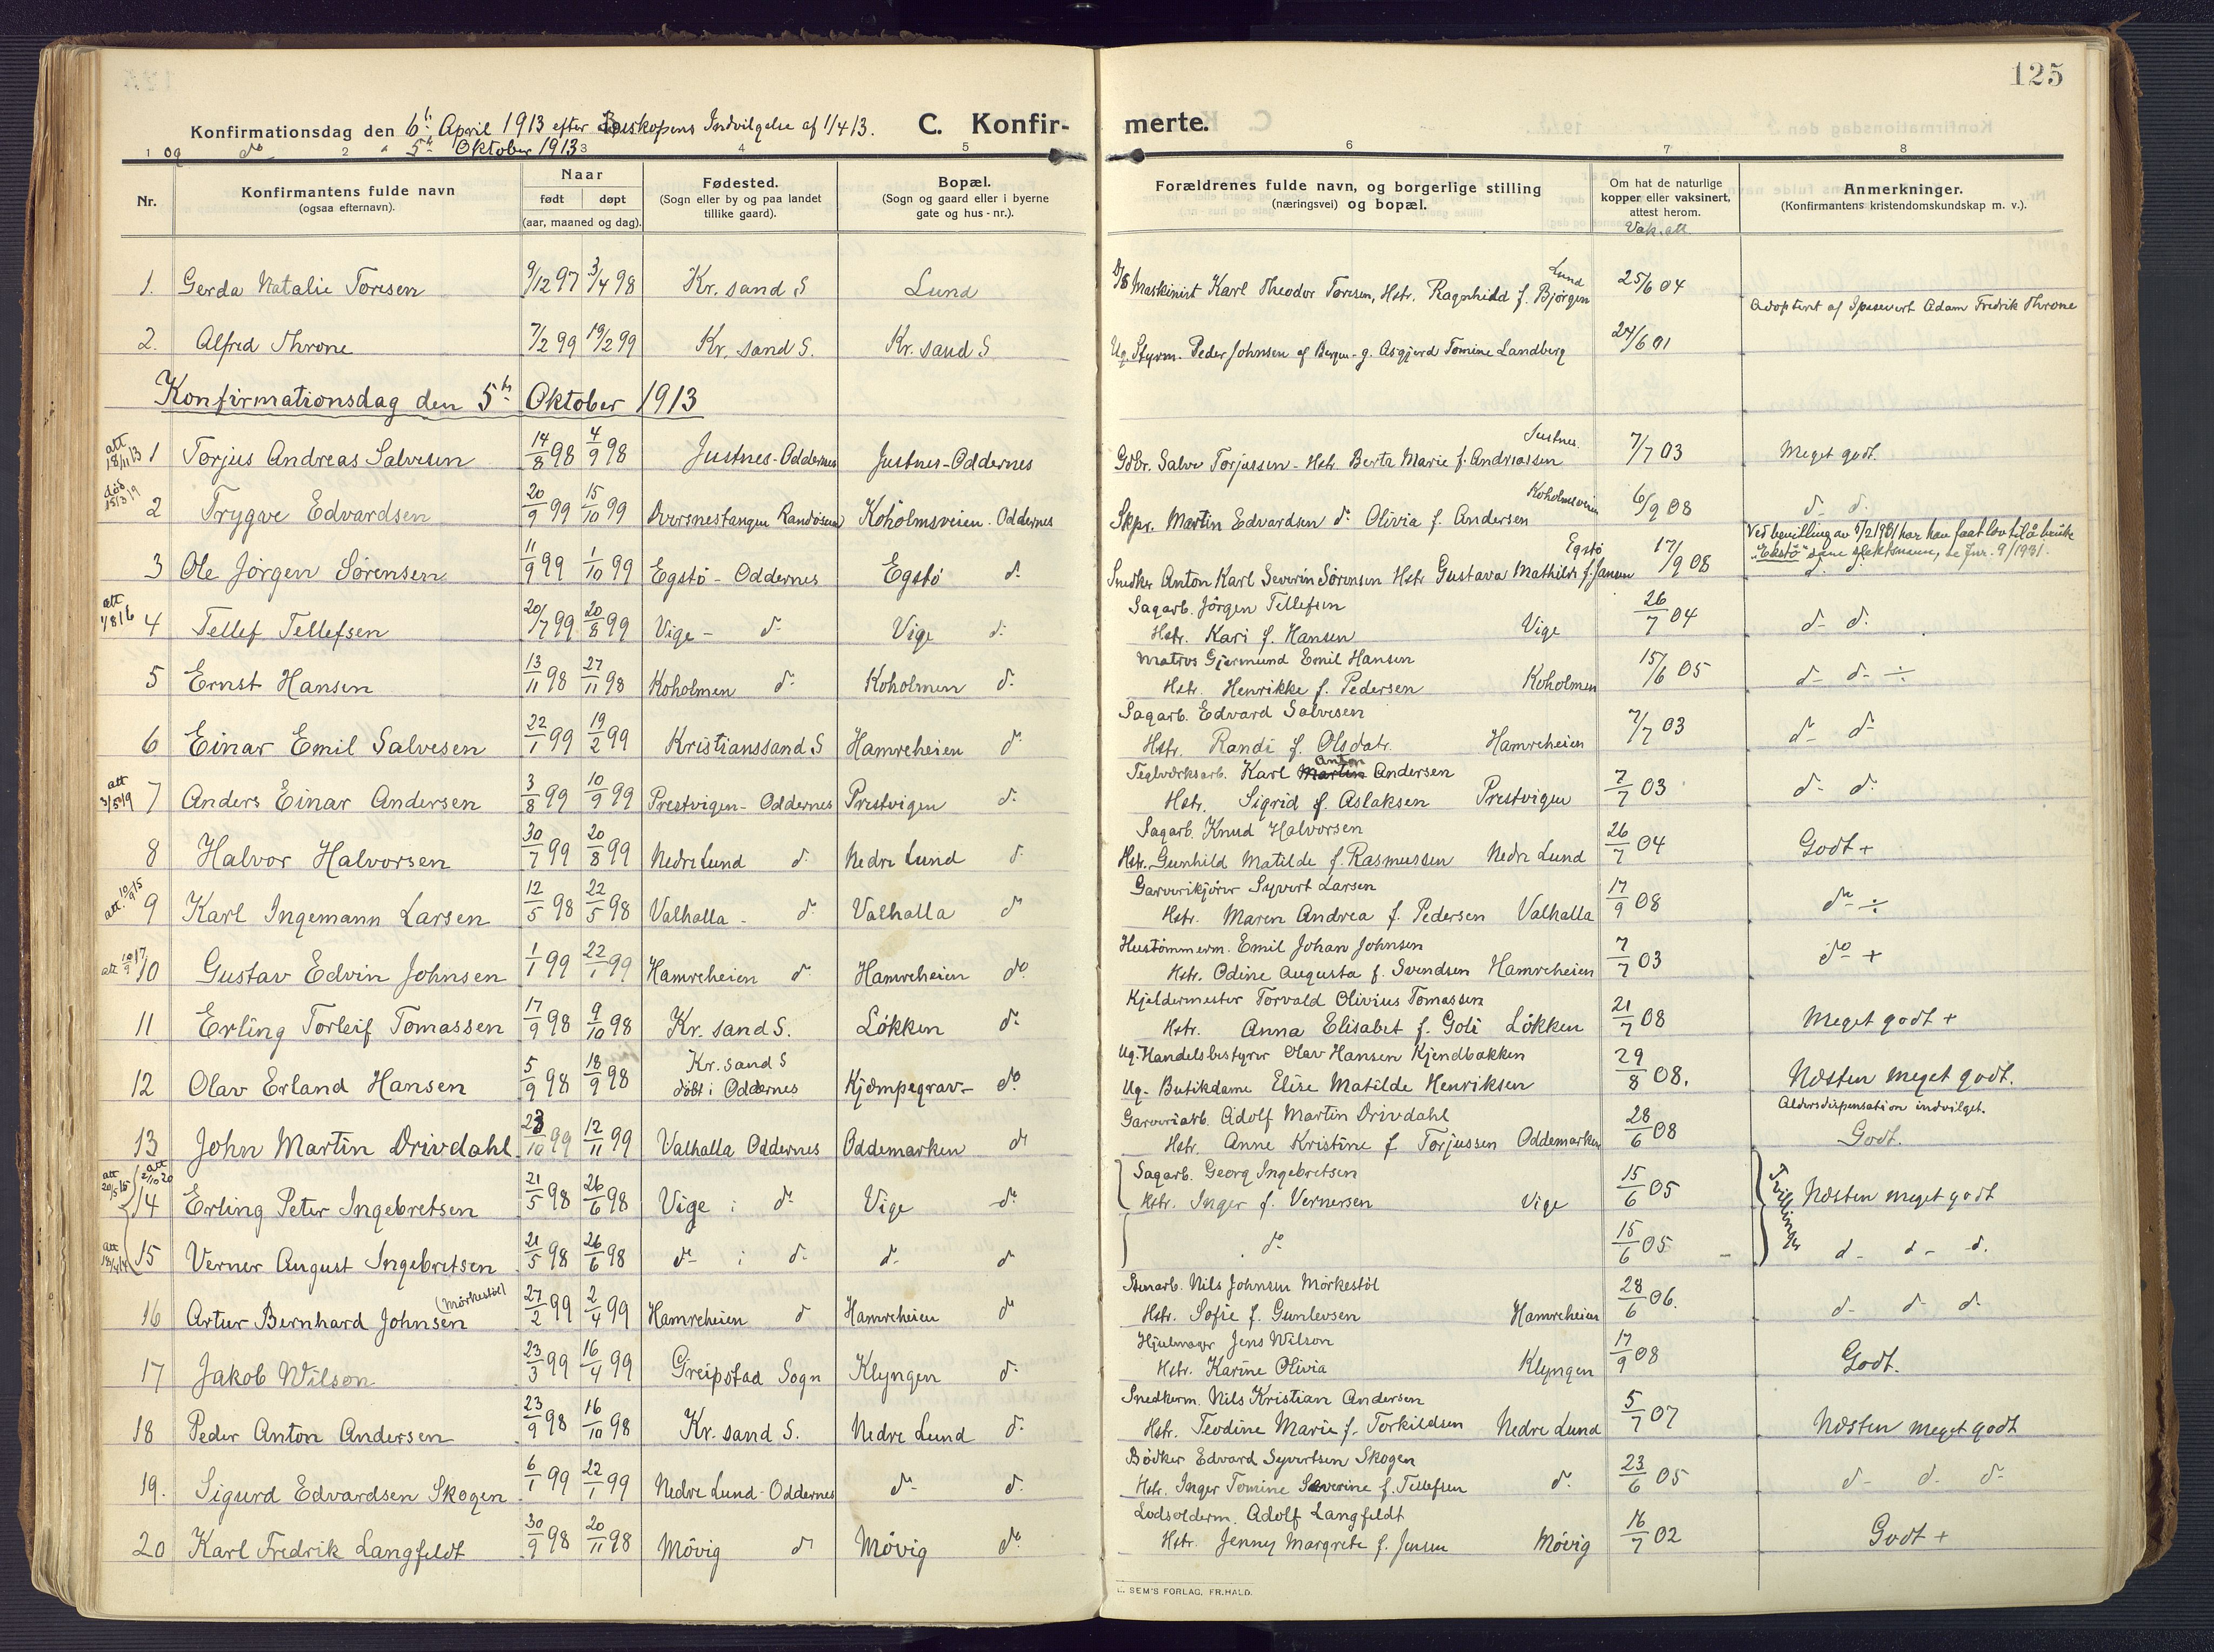 125
Konfirmationsdag den 6te April 1913 efter Biskopens Indvilgelse af 1/4 13. C. Konfir- merte.
og do " 5te Oktober 1913
1 2 3 4 5 6 7 8
Nr. Konfirmantens fulde navn (ogsaa efternavn). Naar født døpt (aar, maaned og dag). Fødested. (Sogn eller by og paa landet tillike gaard). Bopæl. (Sogn og gaard eller i byerne gate og hus-nr.). Forældrenes fulde navn, og borgerlige stilling (næringsvei) og bopæl. Om hat de naturlige kopper eller vaksinert, attest herom. Vak. att. Anmerkninger. (Konfirmantens kristendomskundskap m. v.).
1. Gerda Natalie Toresen 9/12 97 3/4 98 Kr. sand S Lund D/S Maskinist Karl Theodor Toresen, Hstr. Ragnhild f. Bjørgen Lund 25/6 04
2. Alfred Throne 7/2 99 19/2 99 Kr. sand S. Kr. sand S Ug. Styrm. Peder Johnsen af Bergen - g. Asgjerd Tomine Landberg 24/6 01 Adopteret af Adam Fredrik Throne
Konfirmationsdag den 5te Oktober 1913
att 18/11 13 1 Torjus Andreas Salvesen 14/8 98 4/9 98 Justnes-Oddernes Justnes-Oddernes Gdbr. Salve Torjussen - Hstr. Berta Marie f. Andreassen Justnes. 7/7 03 Meget godt.
død 15/3 19 2 Trygve Edvardsen 20/9 99 15/10 99 Dversnestangen Randøsund Koholmsveien. Oddernes Skpr. Martin Edvardsen do Olivia f. Andersen Koholmsveien 6/9 08 do do
3 Ole Jörgen Sörensen 11/9 99 1/10 99 Egstö - Oddernes Egstö do Snedker Anton Karl Severin Sörensen Hstr Gustava Mathilde f. Jansen Egstö 17/9 08 Ved bevilling av 5/2 1931 har han faat lov til å bruke "Ekstö" som slektsnavn, se Jnr. 9/1931. do do
att 1/8 16 4 Tellef Tellefsen 20/7 99 20/8 99 Vige - do Vige do Sagarb. Jörgen Tellefsen
Hstr. Kari f. Hansen Vige 26/7 04 do do
5 Ernst Hansen 13/11 98 27/11 98 Koholmen do Koholmen do Matros Gjermund Emil Hansen
Hstr. Henrikke f. Pedersen Koholmen 15/6 05 do do ÷
6 Einar Emil Salvesen 22/1 99 19/2 99 Kristianssand S Hamreheien do Sagarb. Edvard Salvesen
Hstr. Randi f. Olsdatr. Hamreheien 7/7 03 do do
att 3/5 19 7 Anders Einar Andersen 3/8 99 10/9 99 Prestvigen - Oddernes Prestvigen do Teglværksarb. Karl Martin Anton Andersen
Hstr. Sigrid f. Aslaksen Prestvigen 7/7 03 do do
8 Halvor Halvorsen 30/7 99 20/8 99 Nedre Lund do Nedre Lund do Sagarb. Knud Halvorsen
Hstr. Gunhild Matilde f. Rasmussen Nedre Lund 26/7 04 Godt +
att. 10/9 15 9 Karl Ingemann Larsen 12/5 98 22/5 98 Valhalla - do Valhalla do Garverikjörer Syvert Larsen
Hstr. Maren Andrea f. Pedersen Valhalla 17/9 08 do ÷
att 10/9 17 10 Gustav Edvin Johnsen 1/1 99 22/1 99 Hamreheien do Hamreheien do Hustömmerm. Emil Johan Johnsen
Hstr. Odine Augusta f. Svendsen Hamreheien 7/7 03 do +
11 Erling Torleif Tomassen 17/9 98 9/10 98 Kr. sand S. Lökken do Kjeldermester Torvald Olivius Tomassen
Hstr. Anna Elisabet f. Goli Lökken 21/7 08 Meget godt +
12 Olav Erland Hansen 5/9 98 18/9 98 Kr. sand S döbt i Oddernes Kjæmpegrav- do Ug. Handelsbestyrer Olav Hansen Kjendbakken
Ug. Butikdame Elise Matilde Henriksen 29/8 08. Næsten meget godt.
13 John Martin Drivdahl 23/10 99 12/11 99 Valhalla Oddernes Oddemarken do Garveriarb. Adolf Martin Drivdahl
Hstr. Anne Kristine f Torjussen Oddemarken 28/6 08 Aldersdispensation indvilget. Godt.
att 20/5 15 att 2/10 20 14 Erling Peter Ingebretsen 21/5 98 26/6 98 Vige i do Vige do Sagarb. Georg Ingebretsen
Hstr. Inger f. Vernersen Vige 15/6 05 Tvillinger Næsten meget godt
att 18/4 14 15 Verner August Ingebretsen 21/5 98 26/6 98 do i do do do do 15/6 05 do do do
16 Artur Bernhard Johnsen (Mörkestöl) 27/2 99 2/4 99 Hamreheien do Hamreheien do Stenarb. Nils Johnsen Mörkestöl
Hstr. Sofie f. Gunlevsen Hamreheien 28/6 06. do do do
17 Jakob Wilson 23/3 99 16/4 99 Greipstad Sogn Klyngen do Hjulmager Jens Wilson
Hstr. Karine Olivia Klyngen 17/9 08 Godt.
18 Peder Anton Andersen 23/9 98 16/10 98 Kr. sand S. Nedre Lund do Snedkerm. Nils Kristian Andersen
Hstr. Teodine Marie f. Torkildsen Nedre Lund 5/7 07 Næsten meget godt
19. Sigurd Edvardsen Skogen 6/1 99 22/1 99 Nedre Lund - Oddernes do do Bödker Edvard Syvertsen Skogen
Hstr. Inger Tomine Severine f. Tellefsen do 23/6 05 do do do
20 Karl Fredrik Langfeldt 30/9 98 20/11 98 Mövig do Mövig do Lodsolderm. Adolf Langfeldt
Hstr. Jenny Margrete f. Jensen Mövig 16/7 02 Godt +
E. SEM'S FORLAG, FR.HALD.